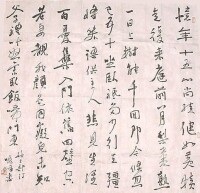 憶年十五心尚孩健如黃犢
走復來庭前八月梨棗熟
一日上樹能千回即今倏忽
已五十坐臥只多少行立強
將笑語供主人悲見生涯
百憂集入門依舊四壁空
老妻覩我顏色同癡兒未知
父子禮叫怒索飯啼門東